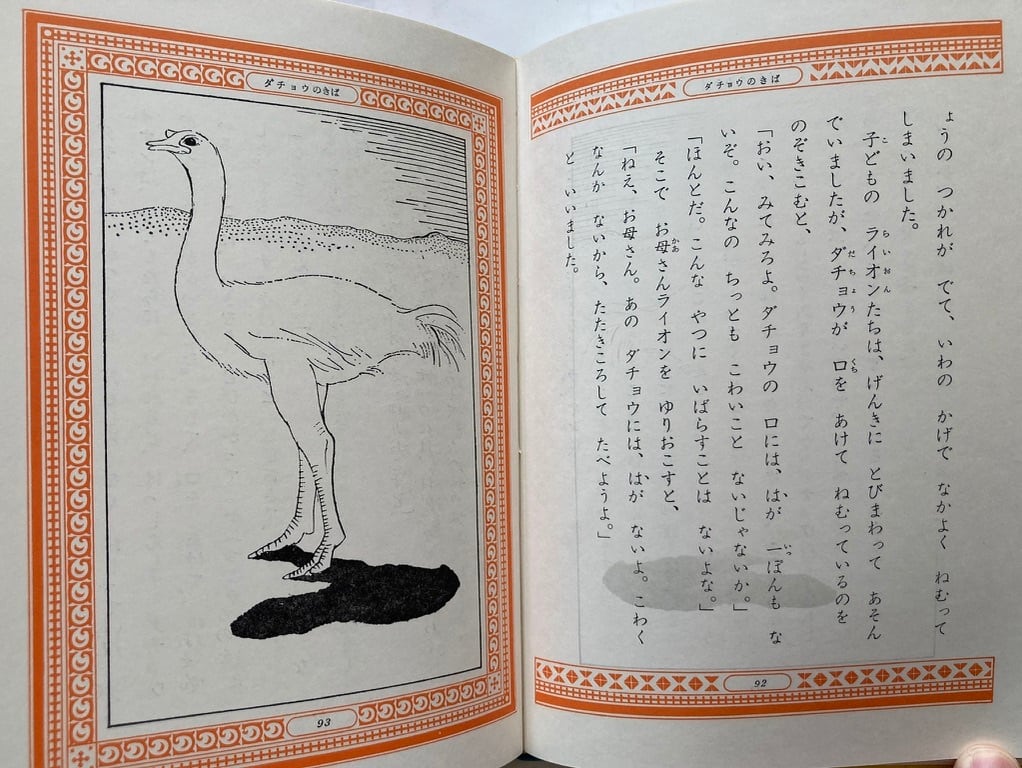 ダチョウのきば
ょうの つかれが でて、いわの かげで なかよく ねむって
しまいました。
子どもの ライオンたちは、げんきに とびまわって あそん
でいましたが、ダチョウが 口を あけて ねむっているのを
のぞきこむと、
「おい、みてみろよ。ダチョウの 口には、はが 一ぽんも な
いぞ。こんなの ちっとも こわいこと ないじゃないか。」
「ほんとだ。こんな やつに いばらすことは ないよな。」
そこで お母さんライオンを ゆりおこすと、
「ねえ、お母さん。あの ダチョウには、はが ないよ。こわく
なんか ないから、たたきころして たべようよ。」
と いいました。
92
ダチョウのきば
93